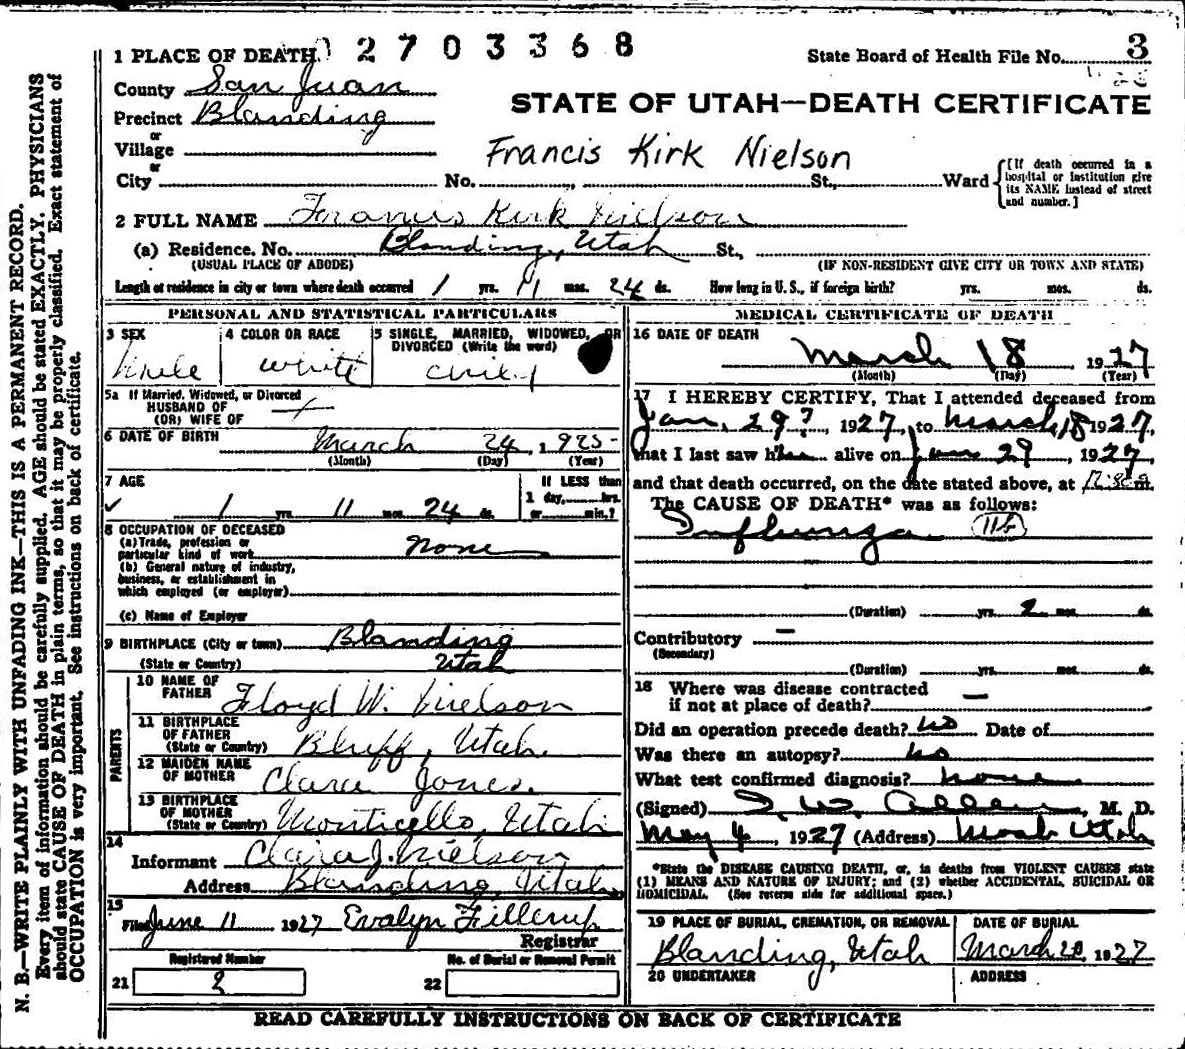 1 PLACE OF DEATH 2 7 0 3 3 6 8 State Board of Health File No. 3
County San Juan
Precinct Blanding
STATE OF UTAH—DEATH CERTIFICATE
or
Village
Francis Kirk Nielson
or
City No. St., Ward
[If death occurred in a hospital or institution give its NAME instead of street and number.]
2 FULL NAME Francis Kirk Nielson
(a) Residence. No. Blanding, Utah St.,
(USUAL PLACE OF ABODE) (IF NON-RESIDENT GIVE CITY OR TOWN AND STATE)
Length of residence in city or town where death occurred 1 yrs. 11 mos. 24 ds. How long in U. S., if foreign birth? yrs. mos. ds.
PERSONAL AND STATISTICAL PARTICULARS
3 SEX 4 COLOR OR RACE 5 SINGLE, MARRIED, WIDOWED, OR
DIVORCED (Write the word)
Male white child
5a If Married, Widowed, or Divorced
HUSBAND OF
(OR) WIFE OF
6 DATE OF BIRTH March 24, 1925
(Month) (Day) (Year)
7 AGE If LESS than
1 day, hrs.
1 yrs. 11 mos. 24 ds. or min.?
8 OCCUPATION OF DECEASED
(a) Trade, profession or
particular kind of work none
(b) General nature of industry,
business, or establishment in
which employed (or employer)
(c) Name of Employer
9 BIRTHPLACE (City or town) Blanding
(State or Country) Utah
PARENTS
10 NAME OF
FATHER Floyd W. Nielson
11 BIRTHPLACE
OF FATHER
(State or Country) Bluff, Utah.
12 MAIDEN NAME
OF MOTHER Clara Jones.
13 BIRTHPLACE
OF MOTHER
(State or Country) Monticello, Utah
14
Informant Clara J. Nielson
Address Blanding, Utah
15
Filed June 11 1927 Evalyn Fillerup
Registrar
Registered Number No. of Burial or Removal Permit
21 2 22
MEDICAL CERTIFICATE OF DEATH
16 DATE OF DEATH
March 18 1927
(Month) (Day) (Year)
17 I HEREBY CERTIFY, That I attended deceased from
Jan, 29?, 1927, to March 18 1927,
that I last saw him alive on Jan 29, 1927,
and that death occurred, on the date stated above, at m.
The CAUSE OF DEATH* was as follows:
Influenza 11b
(Duration) yrs. 2 mos. ds.
Contributory —
(Secondary)
(Duration) yrs. mos. ds.
18 Where was disease contracted
if not at place of death? —
Did an operation precede death? no Date of
Was there an autopsy? no
What test confirmed diagnosis? none
(Signed) I. W. Allen, M. D.
May 4, 1927 (Address) Moab Utah
*State the DISEASE CAUSING DEATH, or, in deaths from VIOLENT CAUSES state
(1) MEANS AND NATURE OF INJURY; and (2) whether ACCIDENTAL, SUICIDAL OR
HOMICIDAL. (See reverse side for additional space.)
19 PLACE OF BURIAL, CREMATION, OR REMOVAL DATE OF BURIAL
Blanding, Utah March 20, 1927
20 UNDERTAKER ADDRESS
READ CAREFULLY INSTRUCTIONS ON BACK OF CERTIFICATE
N. B.—WRITE PLAINLY WITH UNFADING INK—THIS IS A PERMANENT RECORD.
Every item of information should be carefully supplied. AGE should be stated EXACTLY. PHYSICIANS
should state CAUSE OF DEATH in plain terms, so that it may be properly classified. Exact statement of
OCCUPATION is very important. See instructions on back of certificate.